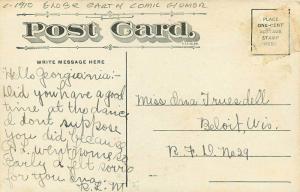 c-1910 ENDER EARTH COMIC GLAMOR
Post Card.
PLACE
ONE-CENT
POSTAGE
STAMP
HERE
WRITE MESSAGE HERE
Hello Georgiania:-
Did you have a good
time at the dance
I dont suppose
you did because
went home so
early I felt sorry
for you Ina.
R.L.M
Miss Ina Truesdell
Beloit, Wis.
R. F. D. No 29